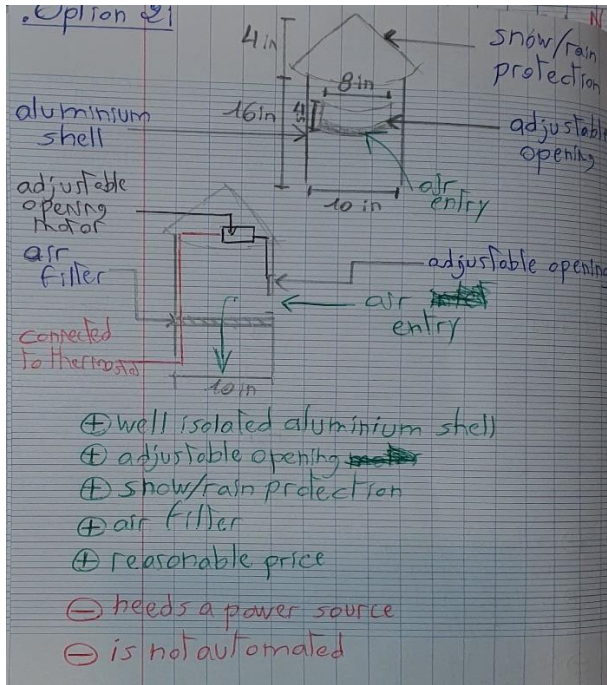 . Option 2i
N
4 in
snow/rain
protection
8 in
aluminium
shell
16in
4in
adjustable
opening
10 in
air
entry
adjustable
opening
motor
air
filter
adjustable opening
air
entry
connected
to thermostat
10 in
⊕ well isolated aluminium shell
⊕ adjustable opening
⊕ snow/rain protection
⊕ air filter
⊕ reasonable price
⊖ needs a power source
⊖ is not automated